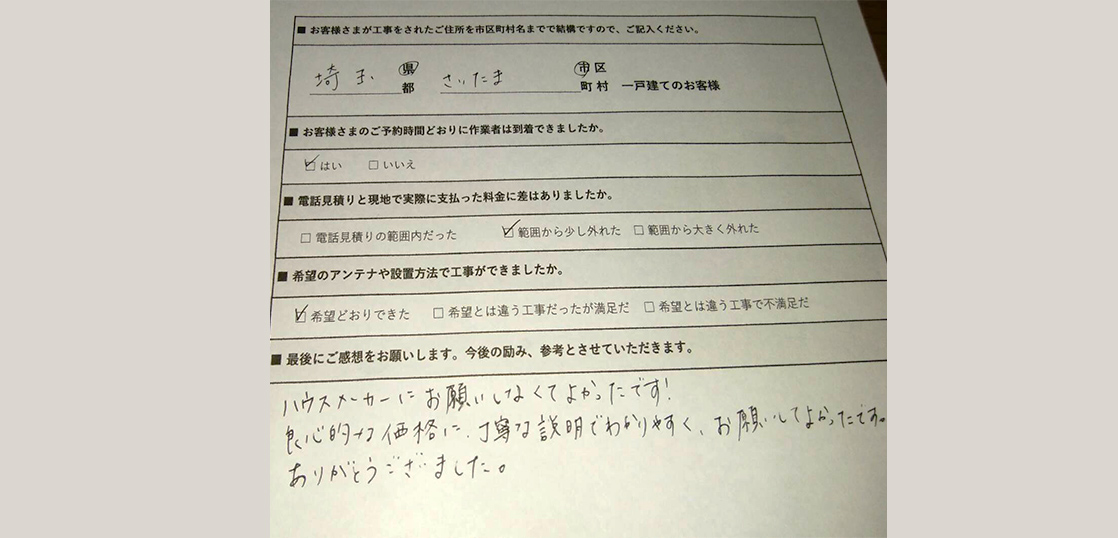 ■ お客様さまが工事をされたご住所を市区町村名までで結構ですので、ご記入ください。
埼玉 県 さいたま 市 区
都 町 村 一戸建てのお客様
■ お客様さまのご予約時間どおりに作業者は到着できましたか。
☑ はい □ いいえ
■ 電話見積りと現地で実際に支払った料金に差はありましたか。
□ 電話見積りの範囲内だった ☑ 範囲から少し外れた □ 範囲から大きく外れた
■ 希望のアンテナや設置方法で工事ができましたか。
☑ 希望どおりできた □ 希望とは違う工事だったが満足だ □ 希望とは違う工事で不満足だ
■ 最後にご感想をお願いします。今後の励み、参考とさせていただきます。
ハウスメーカーにお願いしなくてよかったです!
良心的な価格に、丁寧な説明でわかりやすく、お願いしてよかったです。
ありがとうございました。